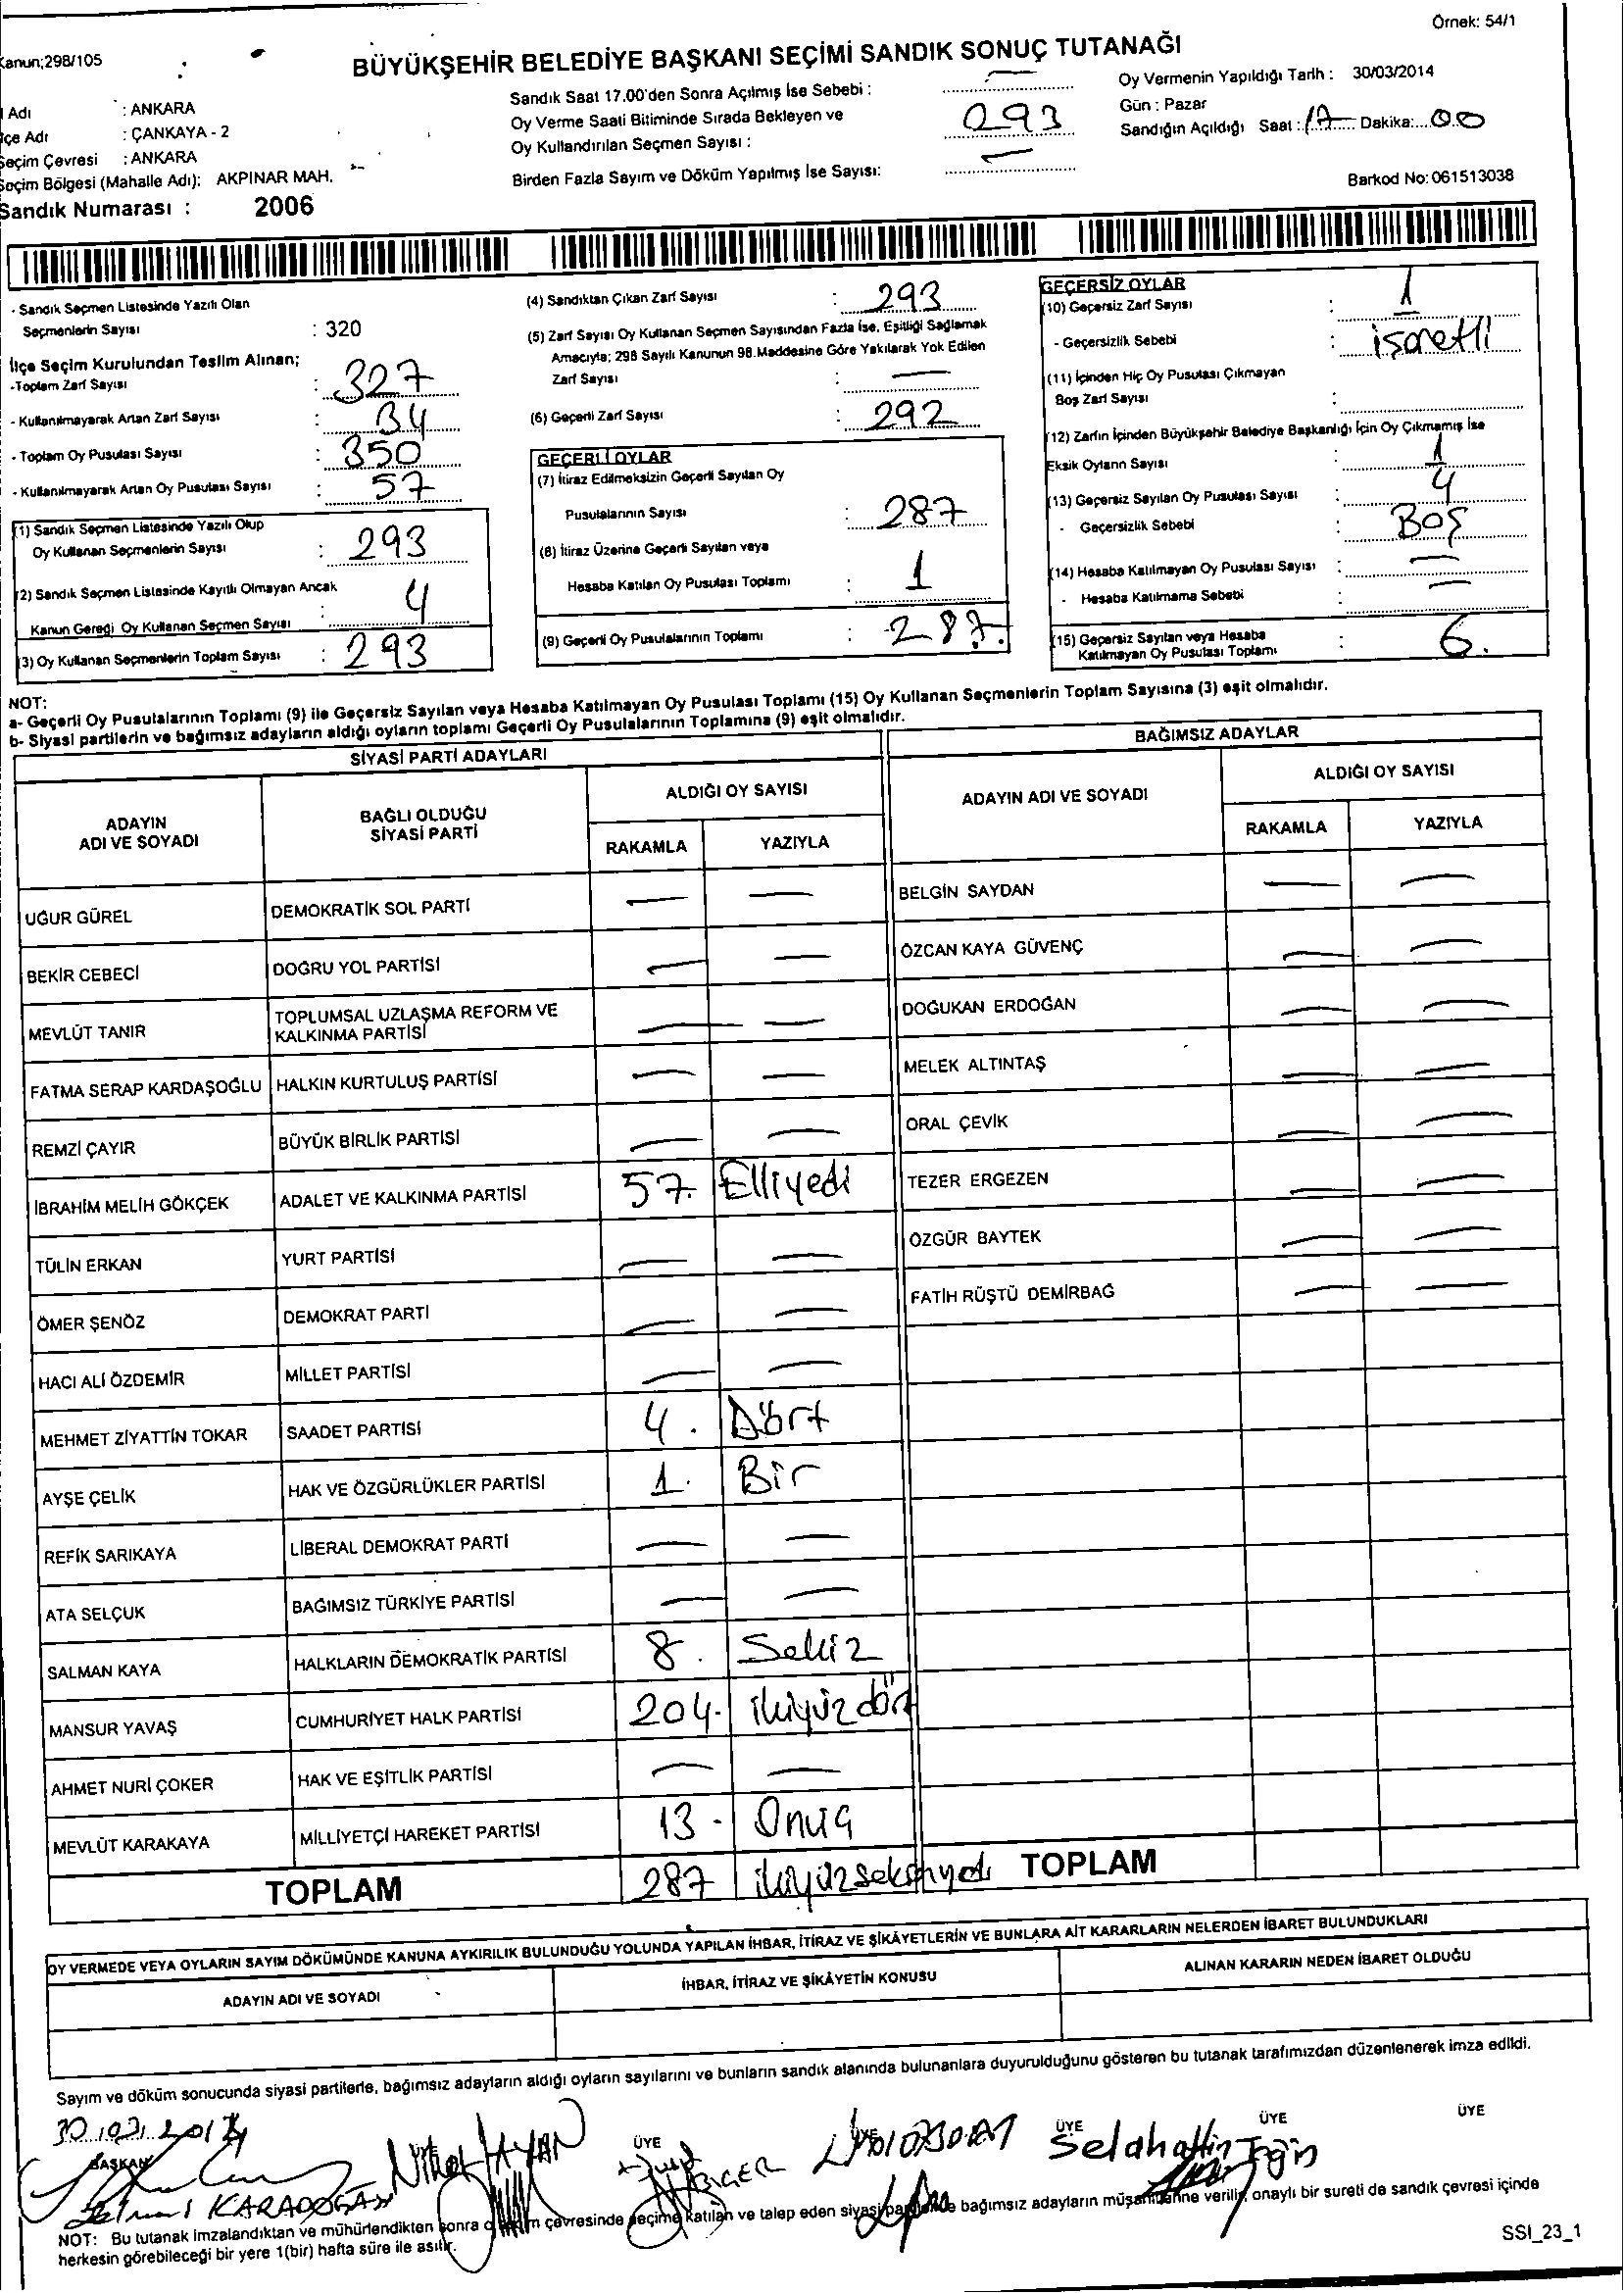 Örnek: 54/1
Kanun;298/105
BÜYÜKŞEHİR BELEDİYE BAŞKANI SEÇİMİ SANDIK SONUÇ TUTANAĞI
Adı : ANKARA
İlçe Adı : ÇANKAYA - 2
Seçim Çevresi : ANKARA
Seçim Bölgesi (Mahalle Adı): AKPINAR MAH.
Sandık Numarası : 2006
Sandık Saat 17.00'den Sonra Açılmış İse Sebebi : —
Oy Verme Saati Bitiminde Sırada Bekleyen ve
Oy Kullandırılan Seçmen Sayısı : 293
Birden Fazla Sayım ve Döküm Yapılmış İse Sayısı: —
Oy Vermenin Yapıldığı Tarih : 30/03/2014
Gün : Pazar
Sandığın Açıldığı Saat : 17 Dakika: 00
Barkod No: 061513038
- Sandık Seçmen Listesinde Yazılı Olan
Seçmenlerin Sayısı : 320
İlçe Seçim Kurulundan Teslim Alınan;
-Toplam Zarf Sayısı : 327
- Kullanılmayarak Artan Zarf Sayısı : 34
- Toplam Oy Pusulası Sayısı : 350
- Kullanılmayarak Artan Oy Pusulası Sayısı : 57
(1) Sandık Seçmen Listesinde Yazılı Olup
Oy Kullanan Seçmenlerin Sayısı : 293
(2) Sandık Seçmen Listesinde Kayıtlı Olmayan Ancak
Kanun Gereği Oy Kullanan Seçmen Sayısı : 4
(3) Oy Kullanan Seçmenlerin Toplam Sayısı : 293
(4) Sandıktan Çıkan Zarf Sayısı : 293
(5) Zarf Sayısı Oy Kullanan Seçmen Sayısından Fazla İse, Eşitliği Sağlamak
Amacıyla; 298 Sayılı Kanunun 98.Maddesine Göre Yakılarak Yok Edilen
Zarf Sayısı : —
(6) Geçerli Zarf Sayısı : 292
GEÇERLİ OYLAR
(7) İtiraz Edilmeksizin Geçerli Sayılan Oy
Pusulalarının Sayısı : 287
(8) İtiraz Üzerine Geçerli Sayılan veya
Hesaba Katılan Oy Pusulası Toplamı : 1
(9) Geçerli Oy Pusulalarının Toplamı : 287.
GEÇERSİZ OYLAR
(10) Geçersiz Zarf Sayısı : 1
- Geçersizlik Sebebi : işaretli
(11) İçinden Hiç Oy Pusulası Çıkmayan
Boş Zarf Sayısı :
(12) Zarfın İçinden Büyükşehir Belediye Başkanlığı İçin Oy Çıkmamış İse
Eksik Oyların Sayısı : 1
(13) Geçersiz Sayılan Oy Pusulası Sayısı : 4
- Geçersizlik Sebebi : Boş
(14) Hesaba Katılmayan Oy Pusulası Sayısı : —
- Hesaba Katılmama Sebebi : —
(15) Geçersiz Sayılan veya Hesaba
Katılmayan Oy Pusulası Toplamı : 6.
NOT:
a- Geçerli Oy Pusulalarının Toplamı (9) ile Geçersiz Sayılan veya Hesaba Katılmayan Oy Pusulası Toplamı (15) Oy Kullanan Seçmenlerin Toplam Sayısına (3) eşit olmalıdır.
b- Siyasi partilerin ve bağımsız adayların aldığı oyların toplamı Geçerli Oy Pusulalarının Toplamına (9) eşit olmalıdır.
SİYASİ PARTİ ADAYLARI
ADAYIN ADI VE SOYADI BAĞLI OLDUĞU SİYASİ PARTİ ALDIĞI OY SAYISI
RAKAMLA YAZIYLA
UĞUR GÜREL DEMOKRATİK SOL PARTİ — —
BEKİR CEBECİ DOĞRU YOL PARTİSİ — —
MEVLÜT TANIR TOPLUMSAL UZLAŞMA REFORM VE KALKINMA PARTİSİ — —
FATMA SERAP KARDAŞOĞLU HALKIN KURTULUŞ PARTİSİ — —
REMZİ ÇAYIR BÜYÜK BİRLİK PARTİSİ — —
İBRAHİM MELİH GÖKÇEK ADALET VE KALKINMA PARTİSİ 57. Elliyedi
TÜLİN ERKAN YURT PARTİSİ — —
ÖMER ŞENÖZ DEMOKRAT PARTİ — —
HACI ALİ ÖZDEMİR MİLLET PARTİSİ — —
MEHMET ZİYATTİN TOKAR SAADET PARTİSİ 4. Dört
AYŞE ÇELİK HAK VE ÖZGÜRLÜKLER PARTİSİ 1. Bir
REFİK SARIKAYA LİBERAL DEMOKRAT PARTİ — —
ATA SELÇUK BAĞIMSIZ TÜRKİYE PARTİSİ — —
SALMAN KAYA HALKLARIN DEMOKRATİK PARTİSİ 8. Sekiz
MANSUR YAVAŞ CUMHURİYET HALK PARTİSİ 204- ikiyüzdört
AHMET NURİ ÇOKER HAK VE EŞİTLİK PARTİSİ — —
MEVLÜT KARAKAYA MİLLİYETÇİ HAREKET PARTİSİ 13- Onüç
TOPLAM 287 ikiyüzseksenyedi
BAĞIMSIZ ADAYLAR
ADAYIN ADI VE SOYADI ALDIĞI OY SAYISI
RAKAMLA YAZIYLA
BELGİN SAYDAN — —
ÖZCAN KAYA GÜVENÇ — —
DOĞUKAN ERDOĞAN — —
MELEK ALTINTAŞ — —
ORAL ÇEVİK — —
TEZER ERGEZEN — —
ÖZGÜR BAYTEK — —
FATİH RÜŞTÜ DEMİRBAĞ — —
TOPLAM
OY VERMEDE VEYA OYLARIN SAYIM DÖKÜMÜNDE KANUNA AYKIRILIK BULUNDUĞU YOLUNDA YAPILAN İHBAR, İTİRAZ VE ŞİKÂYETLERİN VE BUNLARA AİT KARARLARIN NELERDEN İBARET BULUNDUKLARI
ADAYIN ADI VE SOYADI İHBAR, İTİRAZ VE ŞİKÂYETİN KONUSU ALINAN KARARIN NEDEN İBARET OLDUĞU
Sayım ve döküm sonucunda siyasi partilerle, bağımsız adayların aldığı oyların sayılarını ve bunların sandık alanında bulunanlara duyurulduğunu gösteren bu tutanak tarafımızdan düzenlenerek imza edildi.
30.03.2014
BAŞKAN ÜYE ÜYE ÜYE ÜYE
KARADOĞAN Selahattin
NOT: Bu tutanak imzalandıktan ve mühürlendikten sonra çevresinde seçime katılan ve talep eden siyasi bağımsız adayların müşahitlerine verilir, onaylı bir sureti de sandık çevresi içinde
herkesin görebileceği bir yere 1(bir) hafta süre ile asılır.
SSI_23_1